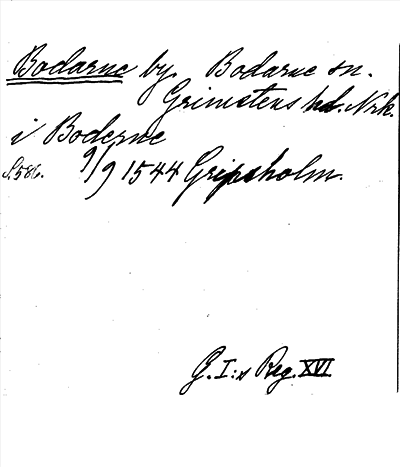 Bodarne by. Bodarne sn.
Grimstens hd. Nrk.
i Boderne
S. 586. 9/9 1544 Gripsholm.
G. I:s Reg. XVI